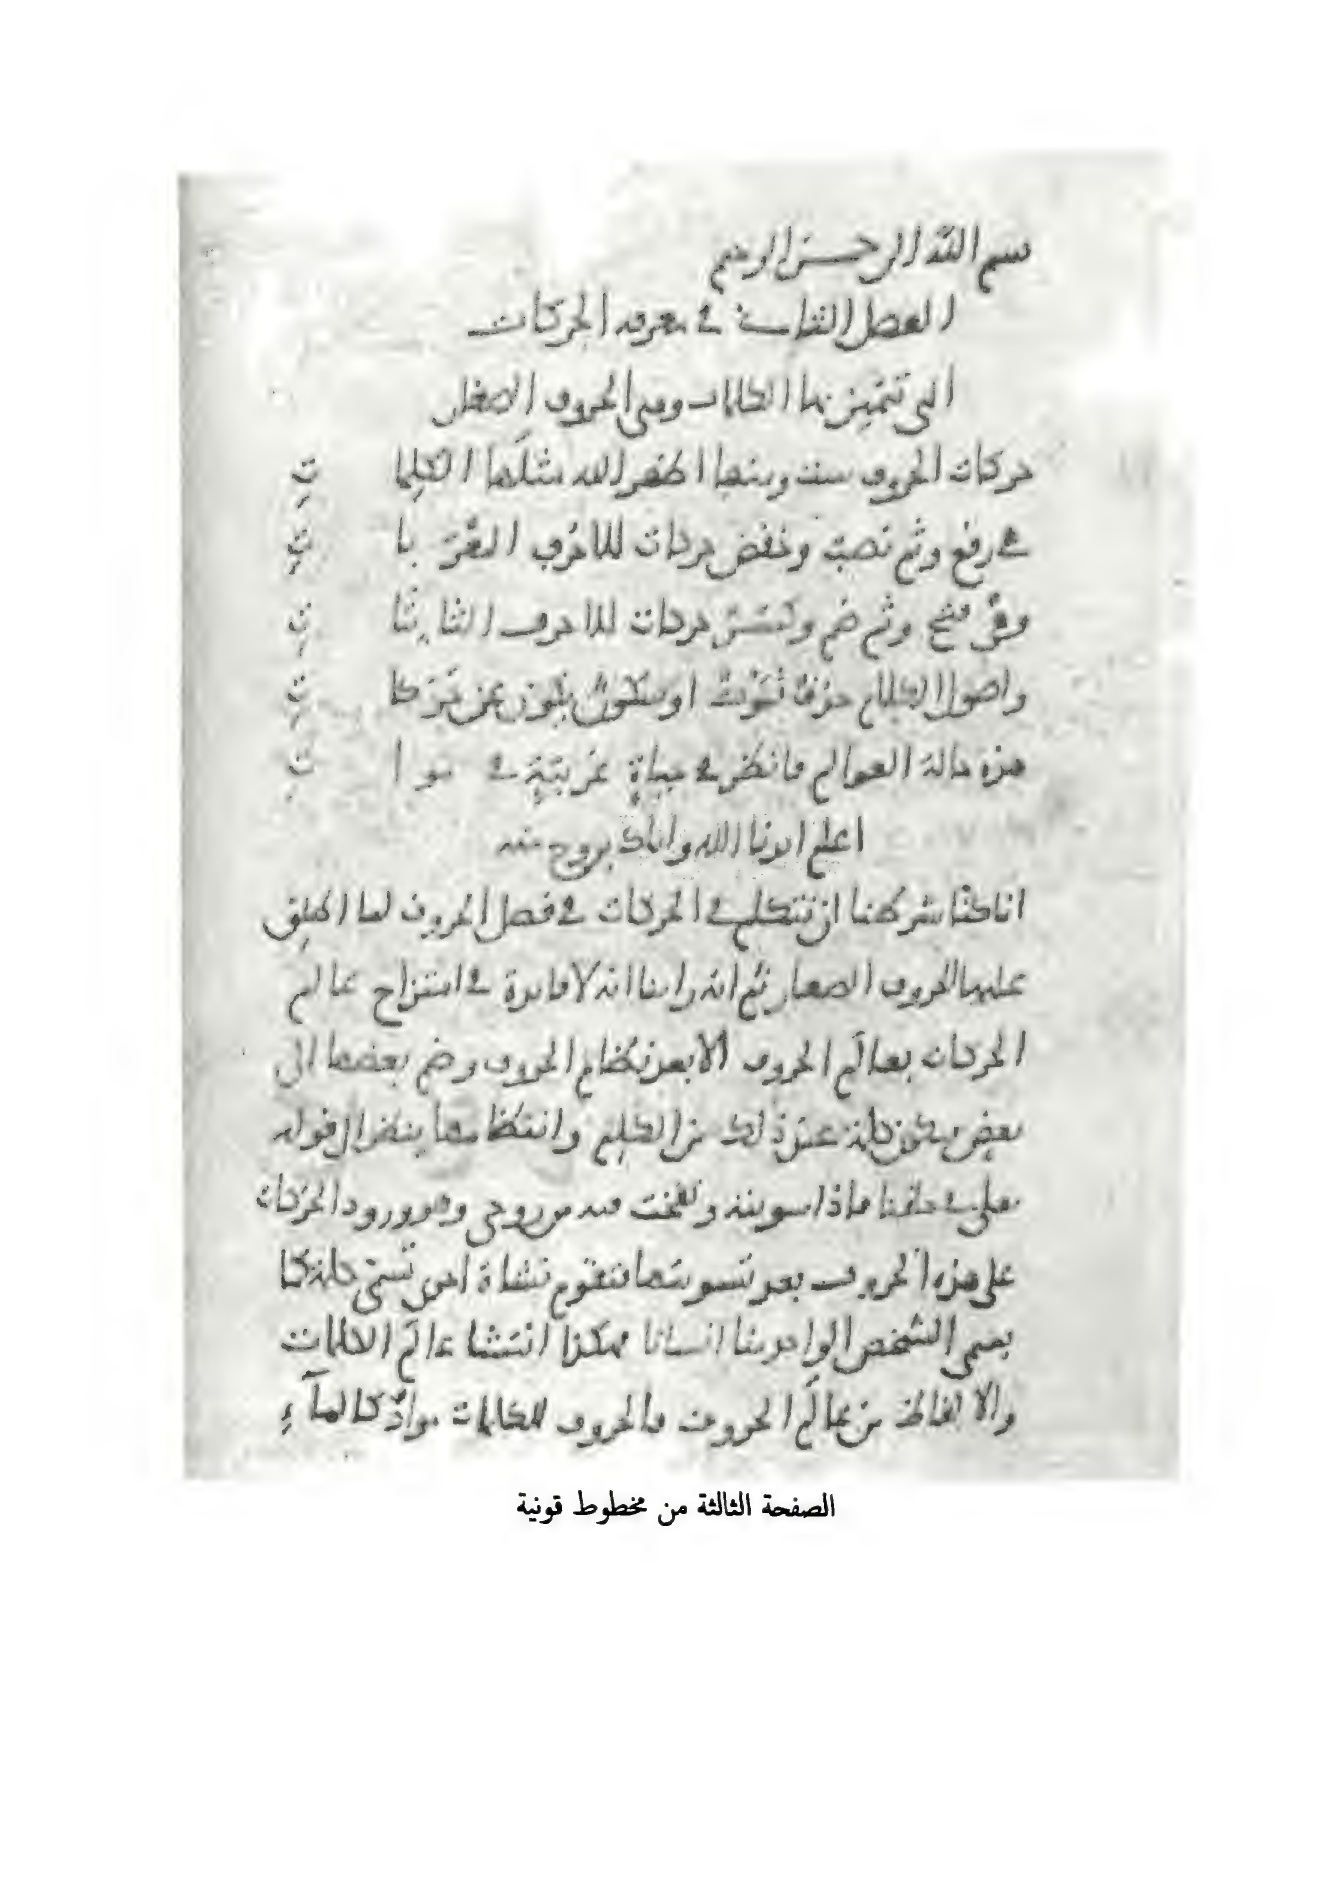 بسم الله الرحمن الرحيم
الفصل الثاني في معرفة الحركات
التي تتميز بها الكلمات وهي الحروف الصغار
حركات الحروف ست ومنها اظهر الله مثلها الكلمات
هي رفع وثم نصب وخفض حركات للاحرف المعربات
وهي فتح وثم ضم وكسر حركات للاحرف الثابتات
واصول الكلام حذف فموت او سكون يكون عن حركات
هذه حالة العوالم فانظر في حياة غريبة في موات
اعلم ايدنا الله واياك بروح منه
انا كنا شرطنا ان نتكلم في الحركات في فصل الحروف لما اطلق
عليها الحروف الصغار ثم انه راينا انه لا فايدة في امتزاج عالم
الحركات بعالم الحروف الا بعد نظام الحروف وضم بعضها الى
بعض فتكون كلمة عند ذلك من الكلم وانتظامها ينظر الى قوله
تعلى في خلقنا فاذا سويته ونفخت فيه من روحي وهو ورود الحركات
على هذه الحروف بعد تسويتها فتقوم نشاة اخرى تسمى كلمة كما
يسمى الشخص الواحد منا انسانا فهكذا انتشا عالم الكلمات
والالفاظ من عالم الحروف فالحروف للكلمات مواد كالماء
الصفحة الثالثة من مخطوط قونية